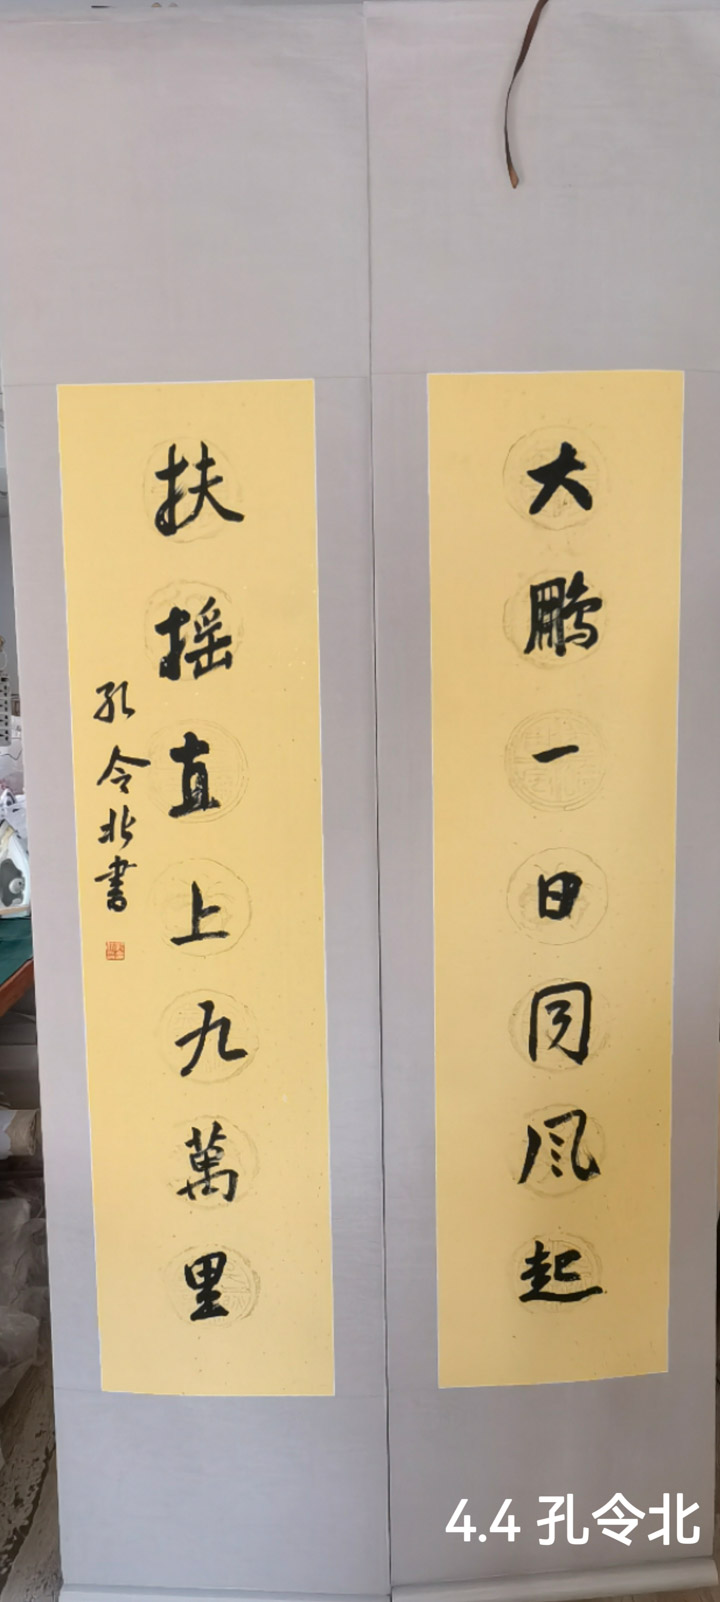 大鹏一日同风起
扶摇直上九萬里
孔令北書
4.4 孔令北